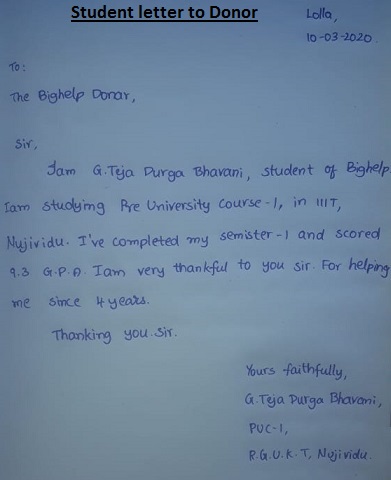 Student letter to Donor
Lolla,
10-03-2020.
To:
The Bighelp Donar,
Sir,
Iam G.Teja Durga Bhavani, student of Bighelp.
Iam studying Pre University Course-1, in IIIT,
Nujividu. I've completed my semister-1 and scored
9.3 G.P.A. Iam very thankful to you sir. For helping
me since 4 years.
Thanking you.Sir.
Yours faithfully,
G.Teja Durga Bhavani,
PUC-1,
R.G.U.K.T, Nujividu.